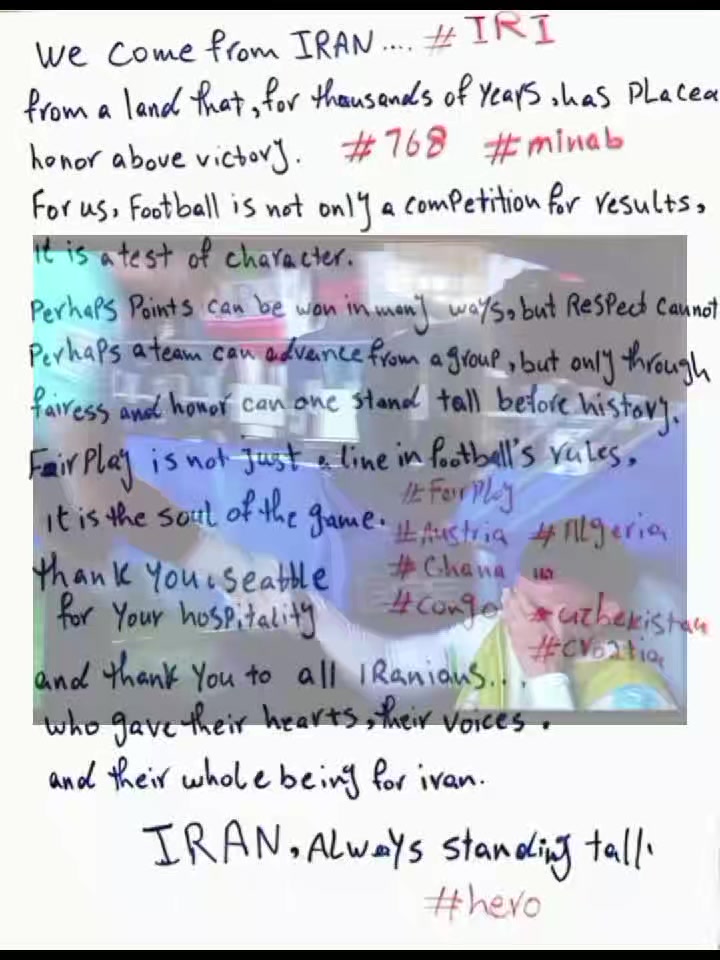 We come from IRAN.... #IRI
from a land that, for thousands of years, has Placed
honor above victory. #768 #minab
For us, Football is not only a competition for results,
it is a test of character.
Perhaps Points can be won in many ways, but Respect cannot
Perhaps a team can advance from a group, but only through
fairess and honor can one stand tall before history.
Fair Play is not just a line in football's rules,
it is the soul of the game. #Fair Play
#Austria #Algeria
thank you, seattle #Ghana
for your hospitality #congo #uzbekistan
#Croatia
and thank you to all IRanians...
who gave their hearts, their voices.
and their whole being for iran.
IRAN, Always standing tall.
#hero